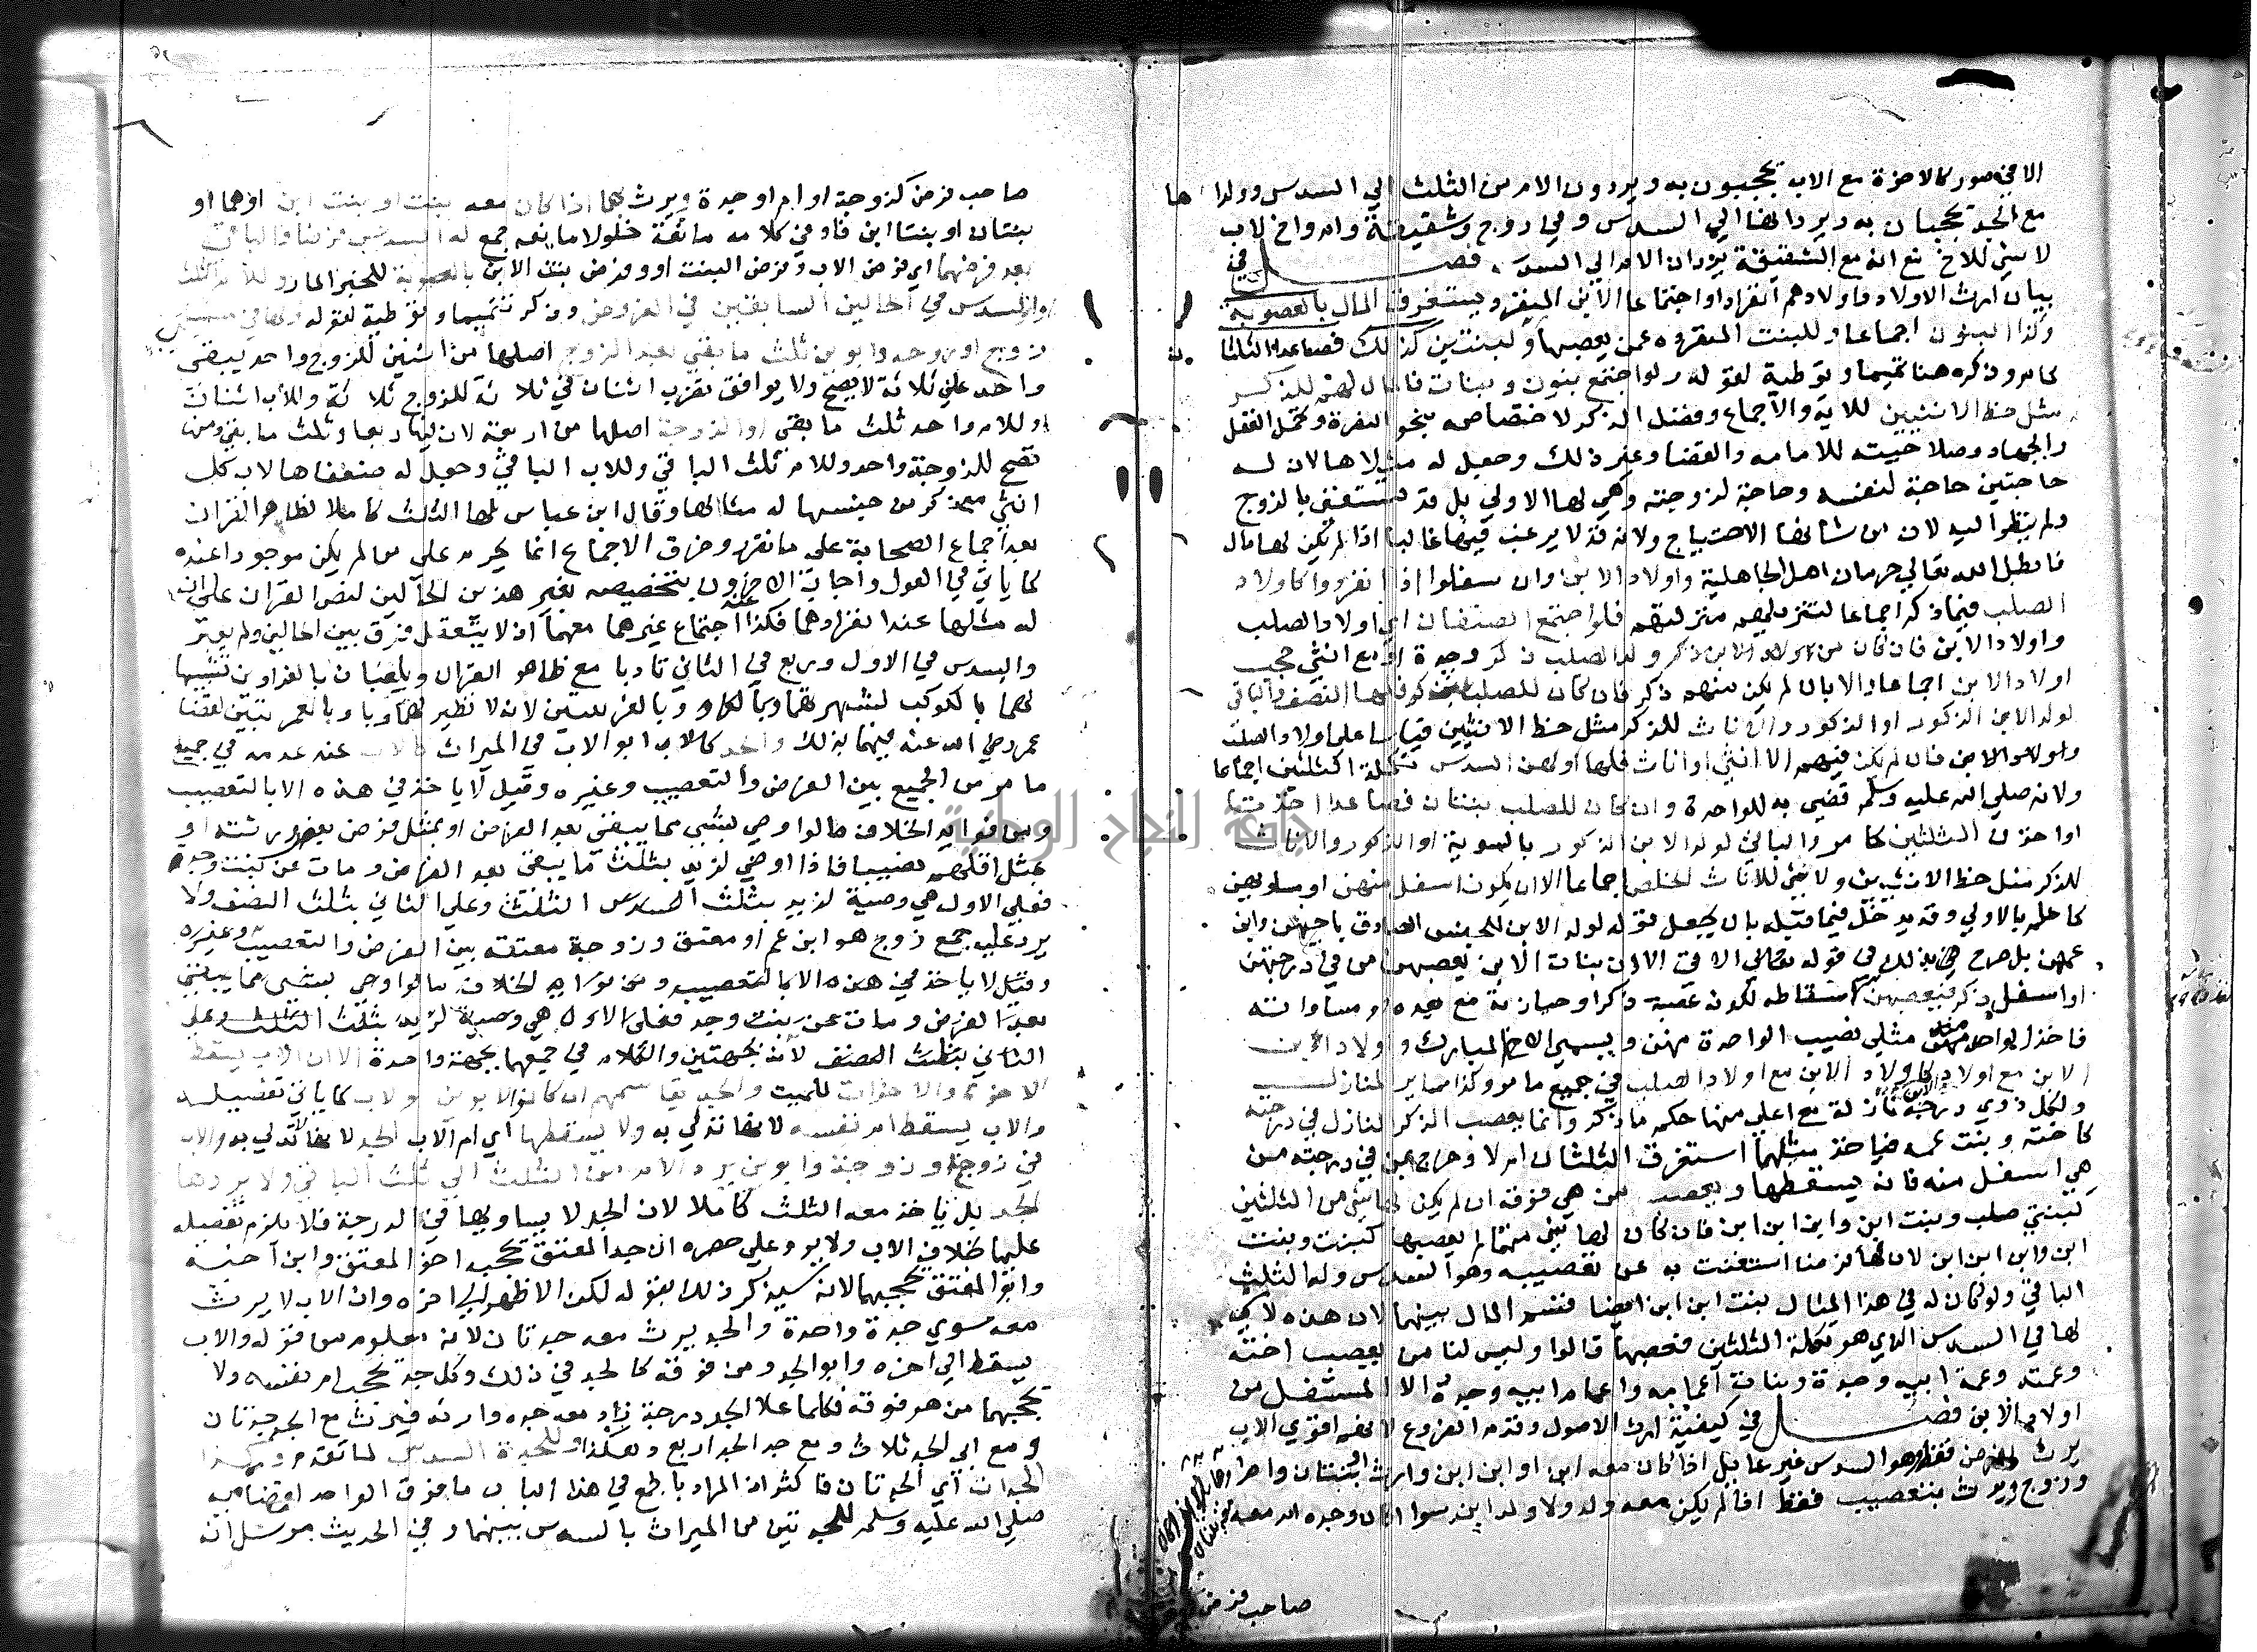 الا في صور كالاخوة مع الاب يحجبون به ويردون الام من الثلث الي السدس وولدا ها
مع الجد يحجبان به ويردانها الي السدس وفي زوج وشقيقة وام واخ لاب
لا شي للاخ مع انه مع الشقيقة يردان الام الي السدس فصل في
بيان ارث الاولاد واولادهم انفرادا واجتماعا الابن المنفرد يستغرق المال بالعصوبة
وكذا البنون اجماعا وللبنت المنفردة عمن يعصبها ولبنتين كذلك فصاعدا الثلثان
كما مر وذكره هنا تتميما وتوطية لقوله ولو اجتمع بنون وبنات فالمال لهم للذكر
مثل حظ الانثيين للاية والاجماع وفضل الذكر لاختصاصه بنحو النصرة وتحمل العقل
والجهاد وصلاحيته للامامه والقضا وغير ذلك وجعل له مثلاها لان له
حاجتين حاجة لنفسه وحاجة لزوجته وهي لها الاولي بل قد تستغني بالزوج
ولم ينظر اليه لان من شانها الاحتياج ولانه قد لا يرغب فيها غالبا اذا لم يكن لها مال
فابطل الله تعالي حرمان اهل الجاهلية واولاد الابن وان سفلوا اذا انفردوا كاولاد
الصلب فيما ذكر اجماعا لتنزيلهم منزلتهم فلو اجتمع الصنفان اي اولاد الصلب
واولاد الابن فان كان من اولاد الصلب ذكر وحده او مع انثي حجب
اولاد الابن اجماعا والا بان لم يكن منهم ذكر فان كان للصلب بنت فلها النصف والباقي
لولد الابن الذكور او الذكور والاناث للذكر مثل حظ الانثيين قياسا علي اولاد الصلب
ولو لولد الابن فان لم يكن فيهم الا انثي او اناث فلها او لهن السدس تكملة الثلثين اجماعا
ولانه صلي الله عليه وسلم قضي به للواحدة وان كان للصلب بنتان فصاعدا اخذتا
او اخذن الثلثين كما مر والباقي لولد الابن الذكور بالسوية او الذكور والاناث
للذكر مثل حظ الانثيين ولا شي للاناث الخلص اجماعا الا ان يكون اسفل منهن او يساويهن
كما علم بالاولي وقد يدخل فيما قبله بان يجعل قوله لولد الابن للجنس الصادق باخيهن وابن
عمهن بل صرح في ذلك في قوله تعالي الاتي الا ان بنات الابن يعصبهن من في درجتهن
او اسفل ذكر فيعصبهن لاسقاطه لكونه عصبة ذكرا وحيازته مع بعده او مساواته
فاخذ الواحد منهن مثلي نصيب الواحدة منهن ويسمي الاخ المبارك واولاد ابن
الابن مع اولاد الابن كاولاد الابن مع اولاد الصلب في جميع ما مر وكذا سائر المنازل
ولكل ذوي درجة نازلة مع اعلي منها حكم ما ذكر وانما يعصب الذكر النازل في درجته
كاخته وبنت عمه فياخذ مثليها استغرق الثلثان ام لا وخرج بمن في درجته من
هي اسفل منه فانه يسقطها ويعصب من هي فوقه ان لم يكن لها شي من الثلثين
كبنتي صلب وبنت ابن وابن ابن ابن فان كان لها شي منهما لم يعصبها كبنت وبنت
ابن وابن ابن ابن لان لها فرضا استغنت به عن تعصيبه وهو السدس وله الثلث
الباقي ولو كان له في هذا المثال بنت ابن ابن ايضا قسم المال بينهما لان هذه لا شي
لها في السدس الذي هو تكملة الثلثين فعصبها قالوا وليس لنا من يعصب اخته
وعمته وعمة ابيه وجده وبنات اعمامه واعمام ابيه وجده الا المستفل من
اولاد الابن فصل في كيفية ارث الاصول وقدم الفروع لانهم اقوي الاب
يرث بفرض فقط وهو السدس غير عائل اذا كان معه ابن او ابن ابن وارث او بنتان وام
وزوج ويرث بتعصيب فقط اذا لم يكن معه ولد ولا ولد ابن سوا اكان وحده ام معه
صاحب فرض
صاحب فرض كزوجة او ام او جدة ويرث بهما اذا كان معه بنت او بنت ابن او هما او
بنتان او بنتا ابن فاو في كلامه مانعة خلو لا مانعة جمع له السدس فرضا والباقي
بعد فرضهما اي فرض الاب وفرض البنت او وفرض بنت الابن بالعصوبة للخبر المار وللام الثلث
او السدس في الحالين السابقين في الفروض وذكر تتميما وتوطية لقوله ولها في مسئلتي
زوج او زوجه وابوين ثلث ما بقي بعد الزوج اصلها من اثنين للزوج واحد يبقي
واحد علي ثلاثة لا يصح ولا يوافق تضرب اثنان في ثلاثة للزوج ثلاثة وللاب اثنان
وللام واحد ثلث ما بقي او الزوجة اصلها من اربعة لان فيها ربعا وثلث ما بقي ومنها
تصح للزوجة واحد وللام ثلث الباقي وللاب الباقي وجعل له ضعفاها لان كل
انثي مع ذكر من جنسها له مثلاها وقال ابن عباس لها الثلث كاملا لظاهر القران
بعد اجماع الصحابة علي ما تقرر وخرق الاجماع انما يحرم علي من لم يكن موجودا عنده
كما ياتي في العول واجاب الاخرون بتخصيصه بغير هذين الحالين لنص القران علي ان
له مثليها عند انفرادهما فكذا عند اجتماع غيرهما معهما اذ لا يتعقل فرق بين الحالين ولم يعبر
والسدس في الاول وربع في الثاني تادبا مع ظاهر القران ويلقبان بالغراوين تشبيها
لهما بالكوكب لشهرتهما وبالغريبتين لانه لا نظير لهما وبالعمريتين لقضا
عمر رضي الله عنه فيهما بذلك والجد كالاب ابو الاب في الميراث كالاب عند عدمه في جميع
ما مر من الجمع بين الفرض والتعصيب وغيره وقيل لا ياخذ في هذه الا بالتعصيب
ومن فوايد الخلاف ما لو اوصي بشي مما يبقي بعد الفرض او بمثل فرض بعض ورثته او
بمثل اقلهم نصيبا فاذا اوصي لزيد بثلث ما يبقي بعد الفرض ومات عن بنت وجد
فعلي الاول هي وصية لزيد بثلث الثلث وعلي الثاني بثلث النصف ولا
يرد عليه جمع زوج هو ابن عم او معتق وزوجة معتقه بين الفرض والتعصيب وغيره
وقيل لا ياخذ في هذه الا بالتعصيب ومن فوايد الخلاف ما لو اوصي بشي مما يبقي
بعد الفرض ومات عن بنت وجد فعلي الاول هي وصية لزيد بثلث الثلث وعلي
الثاني بثلث النصف لانه بجهتين والكلام في جمعهما بجهة واحدة الا ان الاب يسقط
الاخوة والاخوات للميت والجد يقاسمهم ان كانوا لابوين او لاب كما ياتي تفصيله
والاب يسقط ام نفسه لانها تدلي به ولا يسقطها اي ام الاب الجد لانها لا تدلي به والاب
في زوج او زوجة وابوين يرد الام من الثلث الي ثلث الباقي ولا يردها
الجد بل تاخذ معه الثلث كاملا لان الجد لا يساويها في الدرجة فلا يلزم تفضيله
عليها بخلاف الاب ولا يرد علي حصره ان جد المعتق يحجبه اخو المعتق وابن اخيه
وابو المعتق يحجبهما لانه سيذكر ذلك بقوله لكن الاظهر الي اخره وان الاب لا يرث
معه سوي جدة واحدة والجد يرث معه جدتان لانه معلوم من قوله والاب
يسقط الي اخره وابو الجد ومن فوقه كالجد في ذلك وكل جد يحجب ام نفسه ولا
يحجبها من هو فوقه فكلما علا الجد درجة زاد معه جده وارثه فيرث مع الجد جدتان
ومع ابي الجد ثلاث ومع جد الجد اربع وهكذا وللجدة السدس لما تقدم وكذا
الجدات اي الجدتان فاكثر اذ المراد بالجمع في هذا الباب ما فوق الواحد لقضائه
صلي الله عليه وسلم للجدتين من الميراث بالسدس بينهما وفي الحديث مرسل انه
جامعة النجاح الوطنية